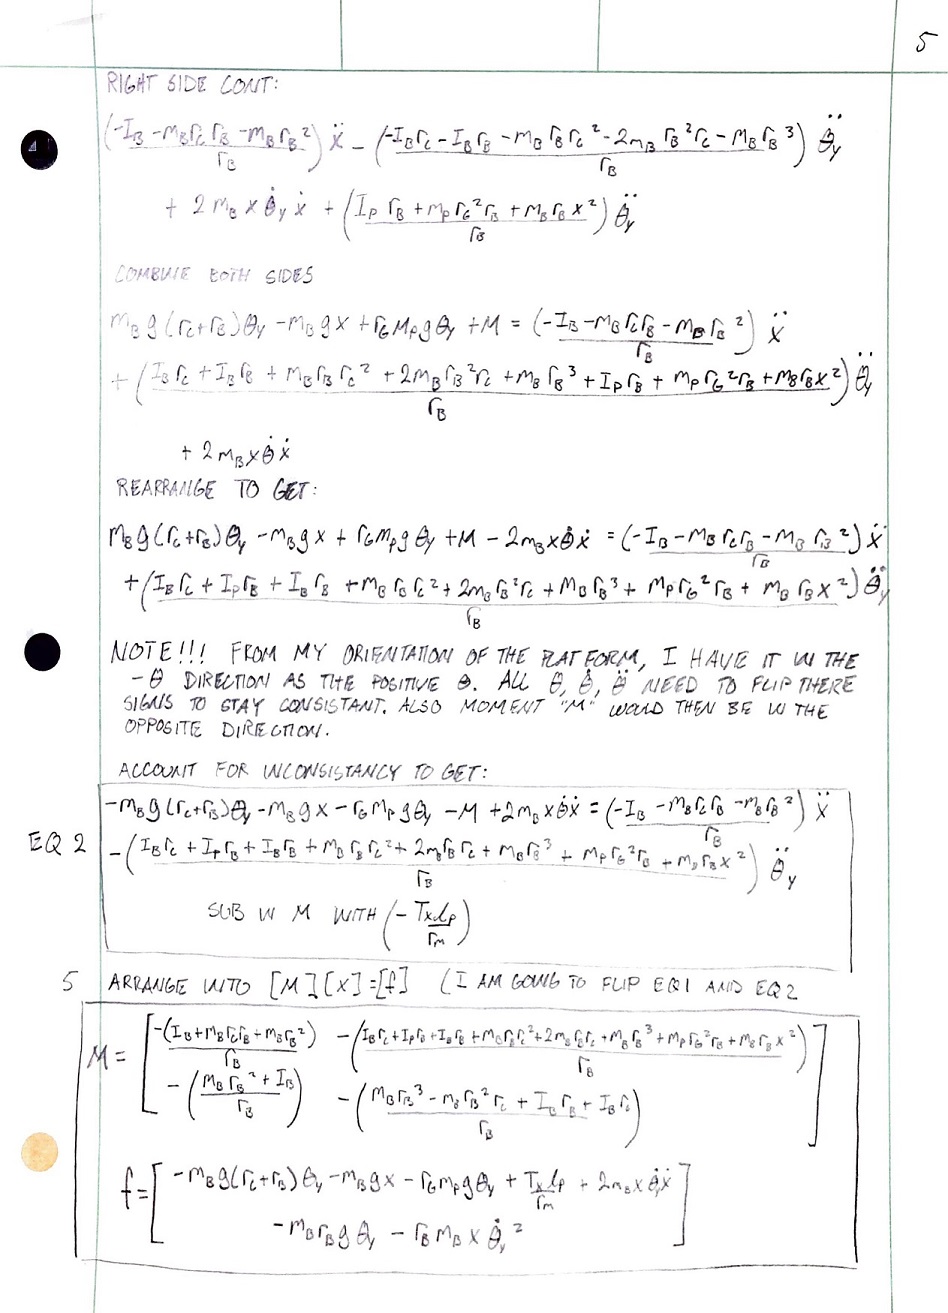 5
RIGHT SIDE CONT:
(-I_B - m_B r_C r_B - m_B r_B²)/r_B ẍ - (-I_B r_C - I_B r_B - m_B r_B r_C² - 2m_B r_B² r_C - m_B r_B³)/r_B θ̈_y
+ 2 m_B x θ̇_y ẋ + (I_P r_B + m_P r_G² r_B + m_B r_B x²)/r_B θ̈_y
COMBINE BOTH SIDES
m_B g (r_C+r_B)θ_y - m_B g x + r_G m_P g θ_y + M = (-I_B - m_B r_C r_B - m_B r_B²)/r_B ẍ
+ (I_B r_C + I_B r_B + m_B r_B r_C² + 2m_B r_B² r_C + m_B r_B³ + I_P r_B + m_P r_G² r_B + m_B r_B x²)/r_B θ̈_y
+ 2 m_B x θ̇ ẋ
REARRANGE TO GET:
m_B g (r_C+r_B)θ_y - m_B g x + r_G m_P g θ_y + M - 2m_B x θ̇ ẋ = (-I_B - m_B r_C r_B - m_B r_B²)/r_B ẍ
+ (I_B r_C + I_P r_B + I_B r_B + m_B r_B r_C² + 2m_B r_B² r_C + m_B r_B³ + m_P r_G² r_B + m_B r_B x²)/r_B θ̈_y
NOTE!!! FROM MY ORIENTATION OF THE PLATFORM, I HAVE IT IN THE
-θ DIRECTION AS THE POSITIVE θ. ALL θ, θ̇, θ̈ NEED TO FLIP THERE
SIGNS TO STAY CONSISTANT. ALSO MOMENT "M" WOULD THEN BE IN THE
OPPOSITE DIRECTION.
ACCOUNT FOR INCONSISTANCY TO GET:
-m_B g (r_C+r_B)θ_y - m_B g x - r_G m_P g θ_y - M + 2m_B x θ̇ ẋ = (-I_B - m_B r_C r_B - m_B r_B²)/r_B ẍ
EQ 2
-(I_B r_C + I_P r_B + I_B r_B + m_B r_B r_C² + 2m_B r_B² r_C + m_B r_B³ + m_P r_G² r_B + m_B r_B x²)/r_B θ̈_y
SUB IN M WITH (-T_x l_P / r_m)
5 ARRANGE INTO [M][X]=[f] (I AM GOING TO FLIP EQ1 AND EQ2
M = [ -(I_B + m_B r_C r_B + m_B r_B²)/r_B   -(I_B r_C + I_P r_B + I_B r_B + m_B r_B r_C² + 2m_B r_B² r_C + m_B r_B³ + m_P r_G² r_B + m_B r_B x²)/r_B
-(m_B r_B² + I_B)/r_B   -(m_B r_B³ - m_B r_B² r_C + I_B r_B + I_B r_C)/r_B ]
f = [ -m_B g (r_C+r_B)θ_y - m_B g x - r_G m_P g θ_y + T_x l_P / r_m + 2m_B x θ̇_y ẋ
-m_B r_B g θ_y - r_B m_B x θ̇_y² ]